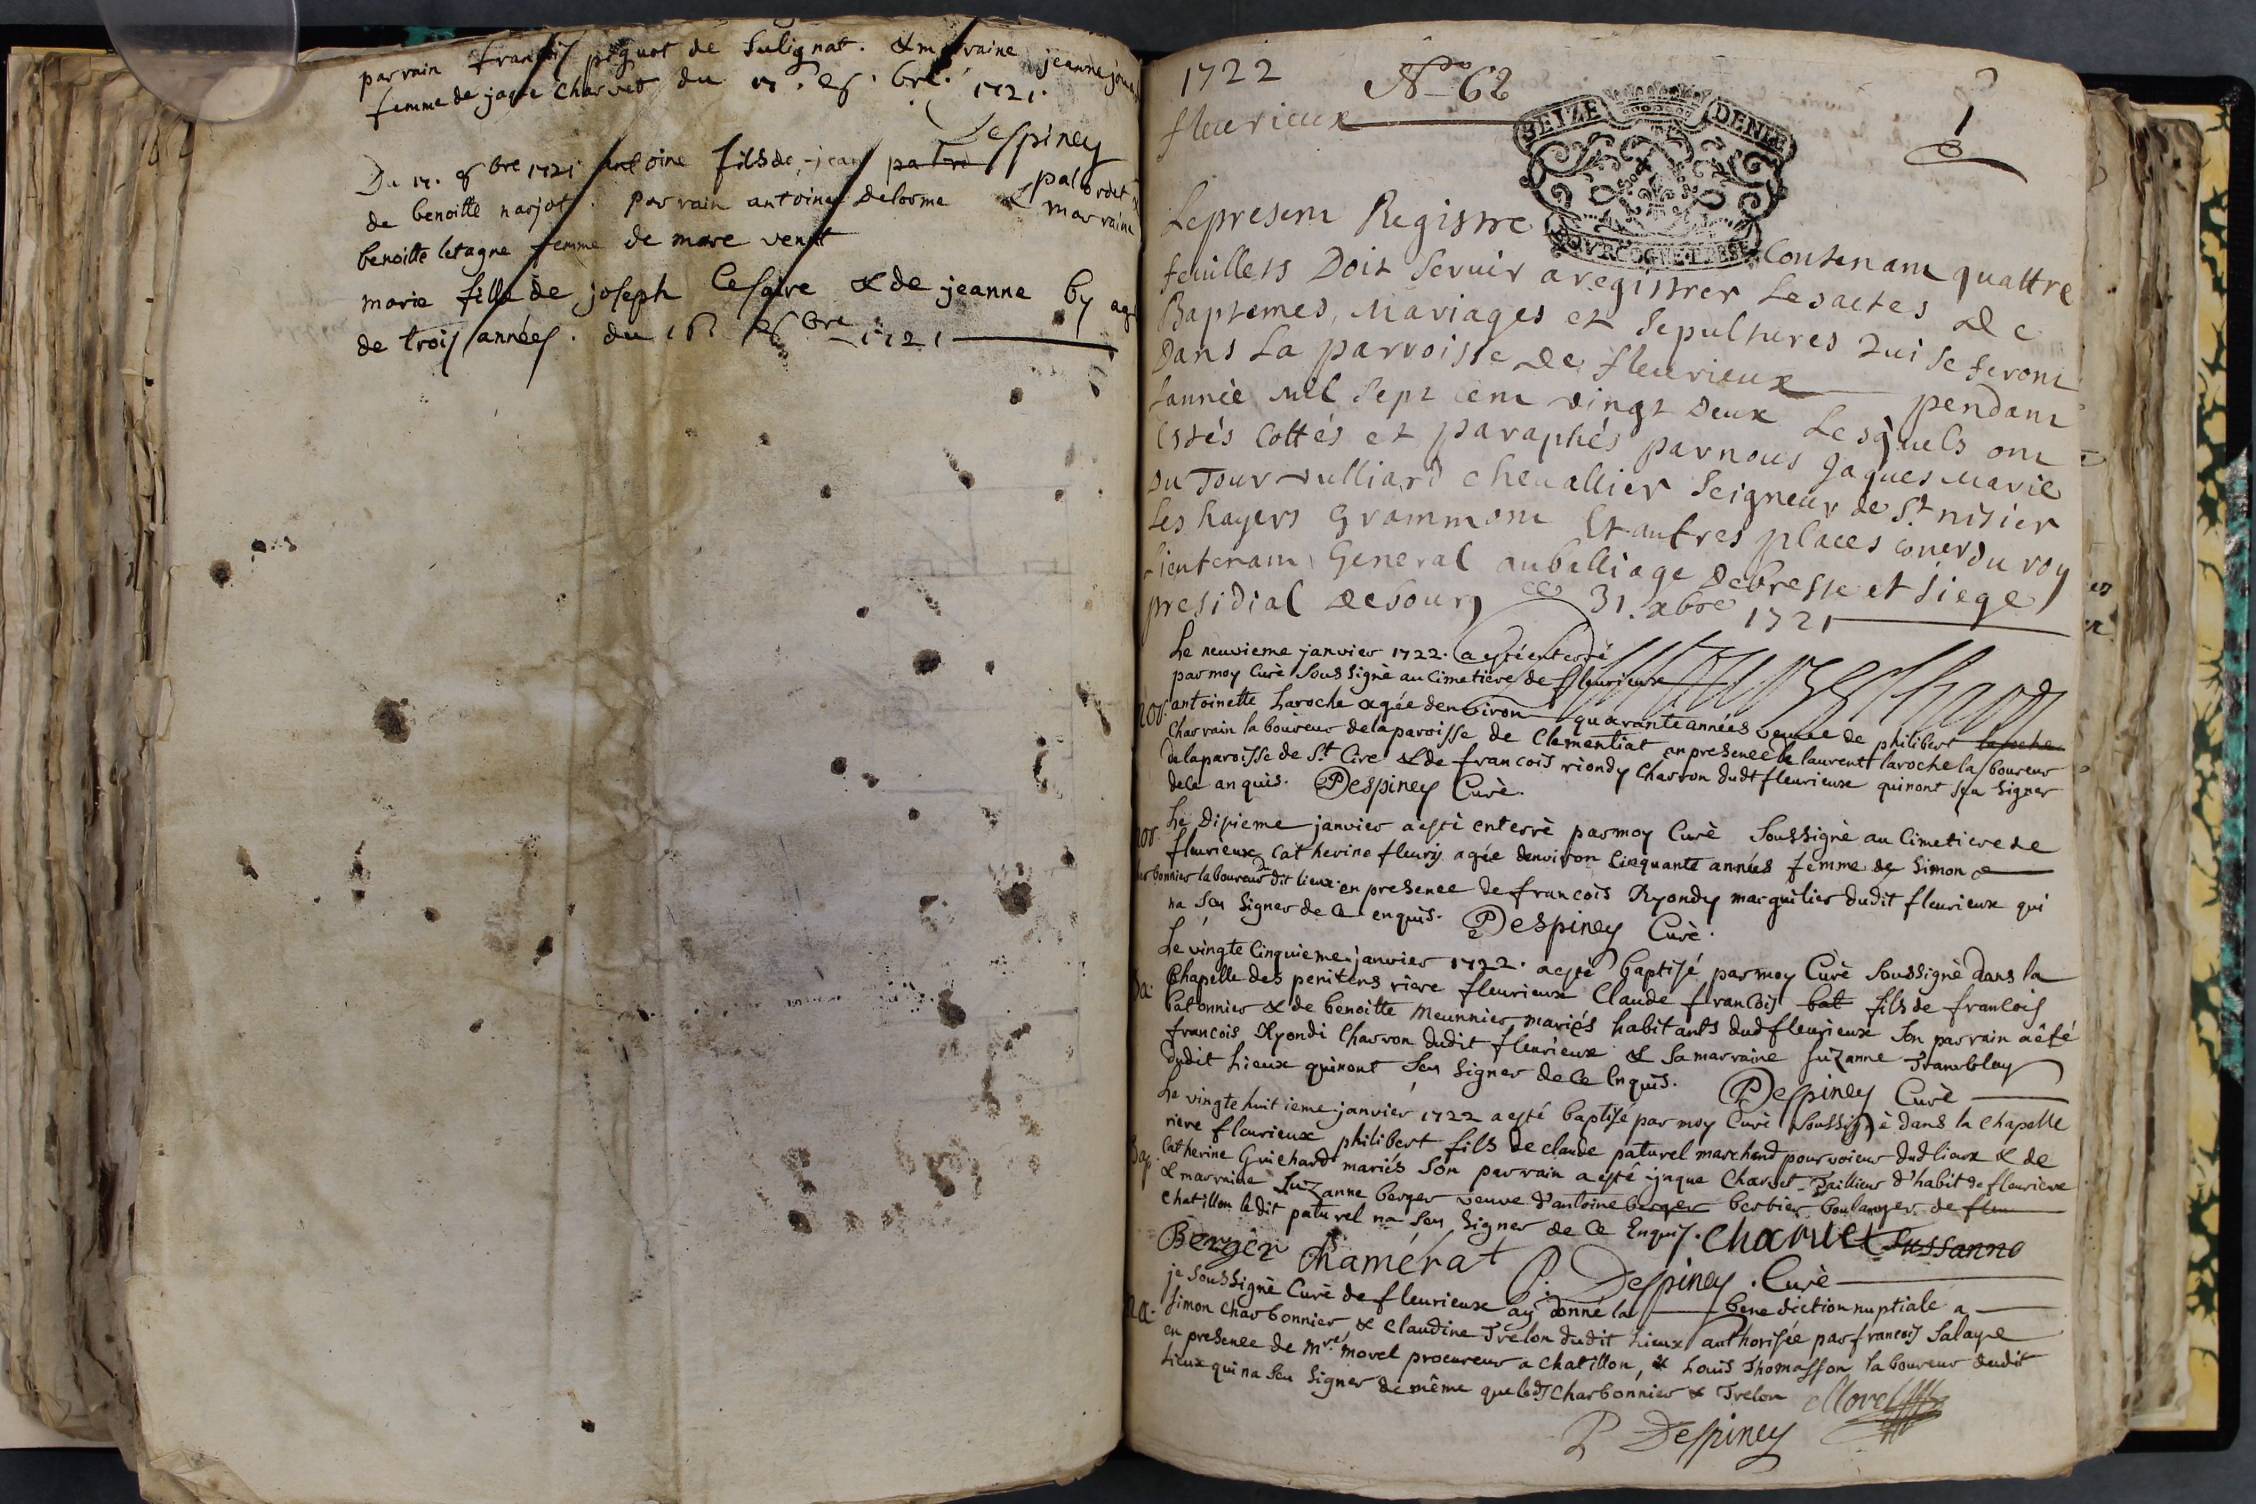 parrain françois piguet de Sulignat. & marraine jeanne
femme de jaque Charvet du 17.e 8.bre. 1721.
Despiney
Du 17. 8bre 1721 antoine fils de jean
de benoitte narjot. parrain antoine Delorme & marraine
benoitte letagne femme de marc
marie fille de joseph Cesare & de jeanne By agé
de trois années. du 8bre 1721
1722 N.o 62
fleurieux
1
SEIZE DENIE
BOVRGOGNE BRESSE
Le present Registre Contenant quattre
feuillets Doit Servir a registrer Les actes De
Baptemes, Mariages et Sepultures Qui Se feront
Dans La parroisse De fleurieux pendant
L'année mil Sept cent vingt Deux Lesquels ont
Estés Cottés et paraphés par nous Jaques Marie
Du Tour vulliard chevallier Seigneur de St nisier
Les hayers Grammont Et autres places coner du roy
Lieutenant General au balliage De bresse et Siege
presidial de bourg ce 31. xbre 1721
Le neuvieme janvier 1722. a esté enterré
par moy Curé Soussigné au Cimetiere de fleurieux
antoinette Laroche agée denviron quarante années veuve de philibert laroche
Charvain laboureur de la paroisse de Clementiat en presence de laurent laroche laboureur
de la paroisse de St Cire & de francois riondy Charron dudt fleurieux qui nont sçu signer
de ce anquis. P Despiney Curé.
Le Disieme janvier a esté enterré par moy Curé Soussigné au Cimetiere de
fleurieux Catherine fleury agée denviron Cinquante années femme de Simon
bonnier laboureur Du dit lieux en presence de francois Ryondy marguilier dudit fleurieux qui
na Sçu Signer de ce enquis. P Despiney Curé.
Le vingte Cinquieme janvier 1722. a esté baptisé par moy Curé Soussigné dans la
Chapelle des penitens riere fleurieux Claude francois bat fils de francois
batonnier & de benoitte Meunnier mariés habitants dud fleurieux Son parrain a eté
francois Ryondi Charron dudit fleurieux & Sa marraine Suzanne Tramblay
dudit Lieux qui nont Sçu Signer de ce Enquis. P Despiney Curé
Le vingte huitieme janvier 1722 a esté baptisé par moy Curé Soussigné dans la Chapelle
riere fleurieux philibert fils de claude paturel marchand pourvoieur dud lieux & de
Catherine Guichard mariés Son parrain a esté jaque Charvet Taillieur d'habit de fleurieux
& marraine Suzanne berger veuve d'antoine berger berbier boulanger de fleu
chatillon ledit paturel na Sçu Signer de ce Enquis. Charvet Sussanno
Berger Chamérat P. Despiney. Curé
je Soussigné Curé de fleurieux ay donné la benediction nuptiale a
Simon Charbonnier & Claudine Trelon dudit Lieux authorisée par francois Salaye
en presence de Mre morel procureur a Chatillon, & Louis Thomasson laboureur dudit
Lieux qui na Sçu Signer de même que led Charbonnier & Trelon Morel
P Despiney